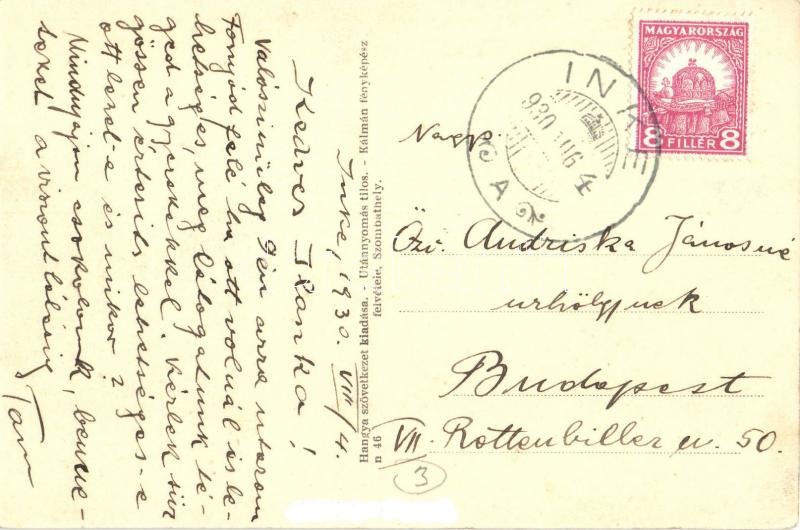 Inke, 1930 VIII/4.
Kedves Ilonka!
Valószinüleg 9én arra utazom
Fonyód felé ha ott volnál és le-
hetséges, meg látogatunk té-
ged a gyerekekkel. Kérlek sür
gössen értesits lehetséges-e
ott leszel-e és mikor?
Mindnyájan csokolunk benne-
teket a viszontlátásig
Hangya szövetkezet kiadása. - Utánnyomás tilos. - Kálmán fényképész
n 46 felvétele, Szombathely.
MAGYARORSZÁG
8 FILLÉR 8
INKE
930
4
A
Nagys.
Özv. Andriska Jánosné
urhölgynek
Budapest
VII. Rottenbiller u. 50.
3